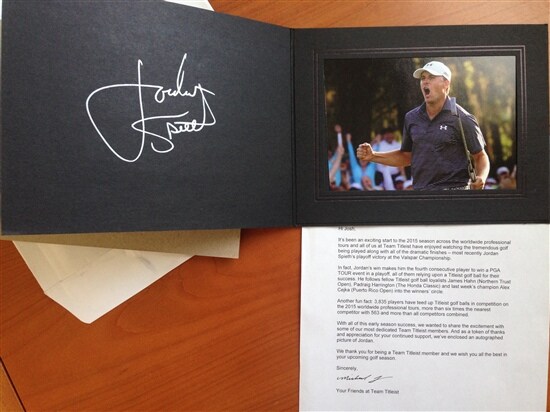 Jordan
Spieth
Hi Josh,
It's been an exciting start to the 2015 season across the worldwide professional
tours and all of us at Team Titleist have enjoyed watching the tremendous golf
being played along with all of the dramatic finishes – most recently Jordan
Spieth's playoff victory at the Valspar Championship.
In fact, Jordan's win makes him the fourth consecutive player to win a PGA
TOUR event in a playoff, all of them relying upon a Titleist golf ball for their
success. He follows fellow Titleist golf ball loyalists James Hahn (Northern Trust
Open), Padraig Harrington (The Honda Classic) and last week's champion Alex
Cejka (Puerto Rico Open) into the winners' circle.
Another fun fact: 3,835 players have teed up Titleist golf balls in competition on
the 2015 worldwide professional tours, more than six times the nearest
competitor with 563 and more than all competitors combined.
With all of this early season success, we wanted to share the excitement with
some of our most dedicated Team Titleist members. And as a token of thanks
and appreciation for your continued support, we've enclosed an autographed
picture of Jordan.
We thank you for being a Team Titleist member and we wish you all the best in
your upcoming golf season.
Sincerely,
Your Friends at Team Titleist